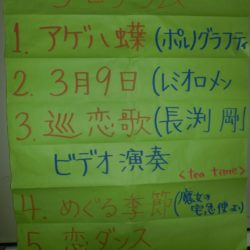 プログラム
1. アゲハ蝶(ポルノグラフティ
2. 3月9日(レミオロメン
3. 巡恋歌(長渕 剛
ビデオ演奏
<tea time>
4. めぐる季節(魔女の宅急便より)
5. 恋ダンス